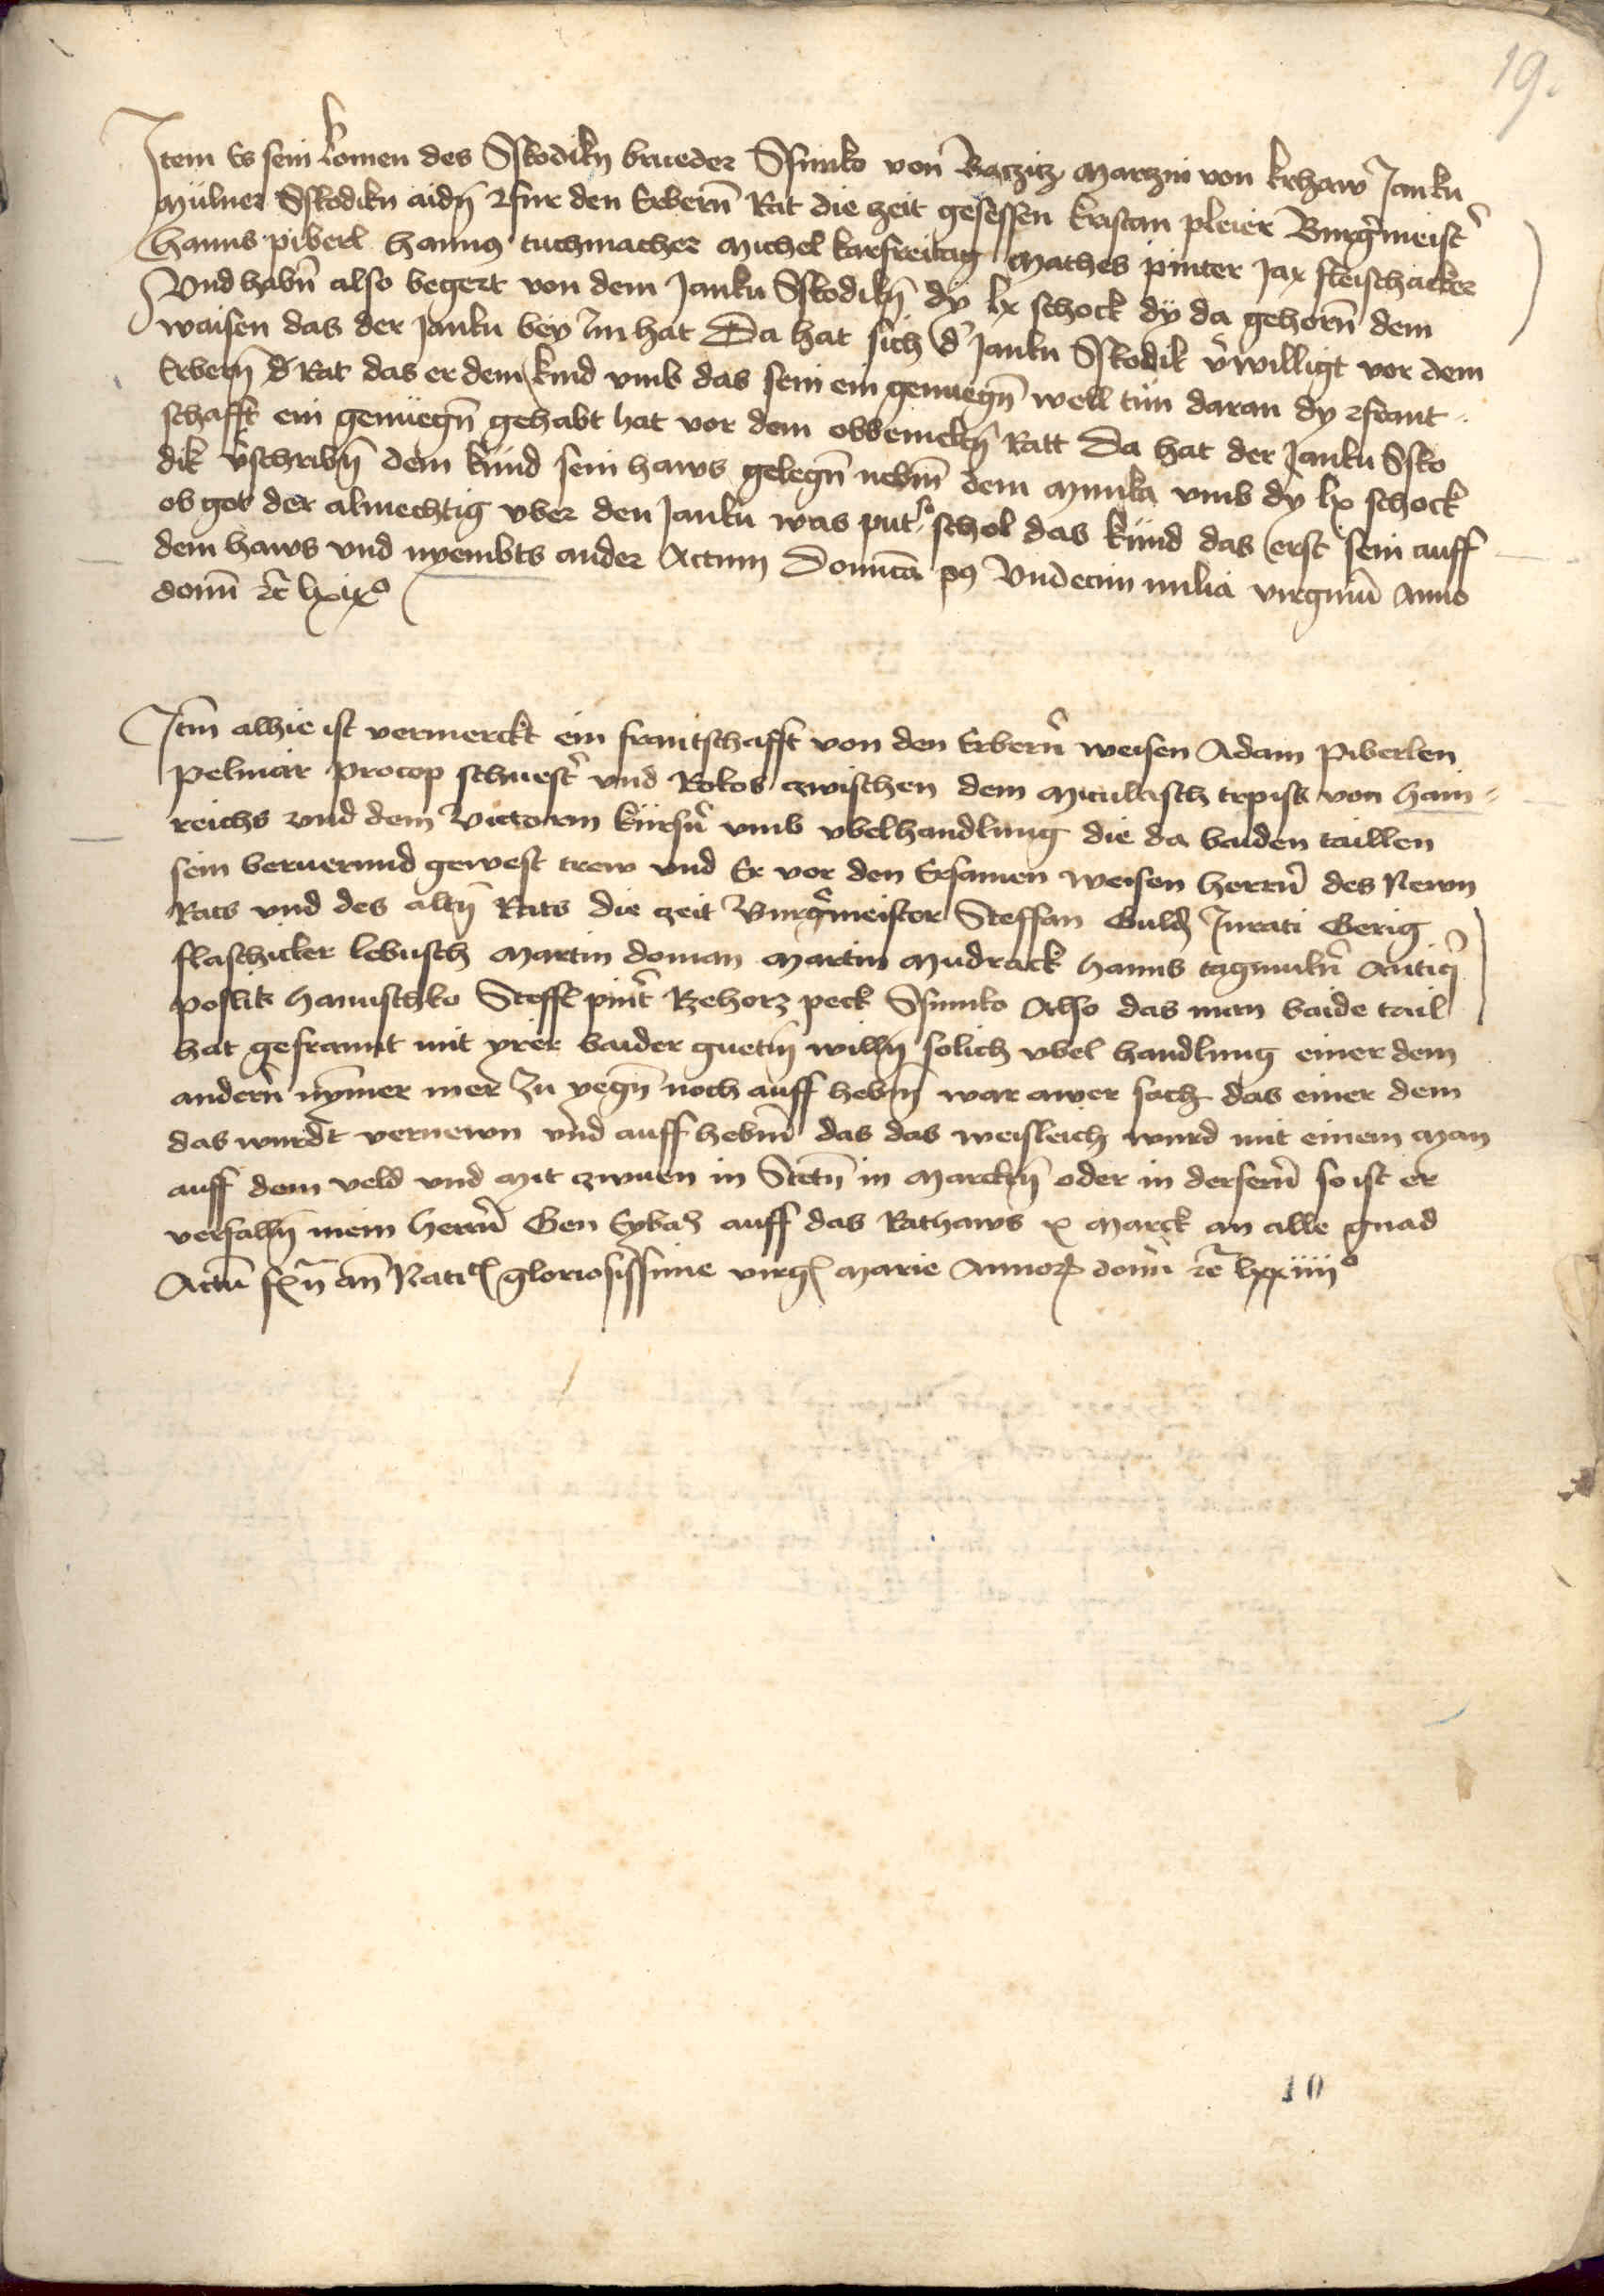 19.
Item Es sein komen des Sskodikn brueder Ssimko von Baczicz Marczin von krhaw Janku
Mülner Sskodikn aidn fur den Erbern Rat die zeit gesessen kristan pleier Burgmeist
Hanns piberl Hannus tuchmacher Michel karfreitag Mathes pinter Jax fleischacker
Vnd habn also begert von dem Janku Sskodikn dy lx schock dy da gehorn dem
waisen das der Janku bey im hat Da hat sich d Janku Sskodik vwilligt vor dem
Erbern Rat das er dem kind vmb das sein ein genuegn well tun daran dy frant
schafft ein genüegn gehabt hat vor dem obbemelten Ratt Da hat der Janku Ssko
dik vschribn dem kind sein haws gelegn nebm dem Munka vmb dy lx schock
ob got der almechtig vber den Janku was put schol das kind das erst sein auff
dem haws vnd nyembts ander Actum Domica p9 Vndecim milia virginu Anno
domi rc lxix°
Itm alhie ist vermerckt ein frantschafft von den Erbern weisen Adam Piberlen
pelmar procop schuest vnd Rokos zwischen dem Miculasch trpisk von Hain
reichs vnd dem Victorin kürsn vmb vbelhandlung die da baiden taillen
sein beruerund gewest trew vnd Er vor den Ersamen weisen herrn des Newn
Rats vnd des altn Rats die zeit Burgmeister Steffan Guld Jurati Gerig
flaschicker lebusch Martin doman Martin Mudrack Hanns tagmuln Antiq
poslik Hanuschko Steffl pint Rzehorz peck Ssimko Also das man baide tail
hat gefrannt mit yrer baider guetn willn solich vbel handlung einer dem
andern nymer mer zu yegn noch auff hebn war awer sach das einer dem
das wurdt vernewn vnd auff hebm das das weisleich wurd mit einem man
auff dem veld vnd mit zwuen in Stetn in Marcktn oder in dersern so ist er
verfalln mein herrn Gen auff das Rathaws x marck an alle gnad
Actu an Natit gloriosissime virg marie Annor domi rc lxxiiii°
10